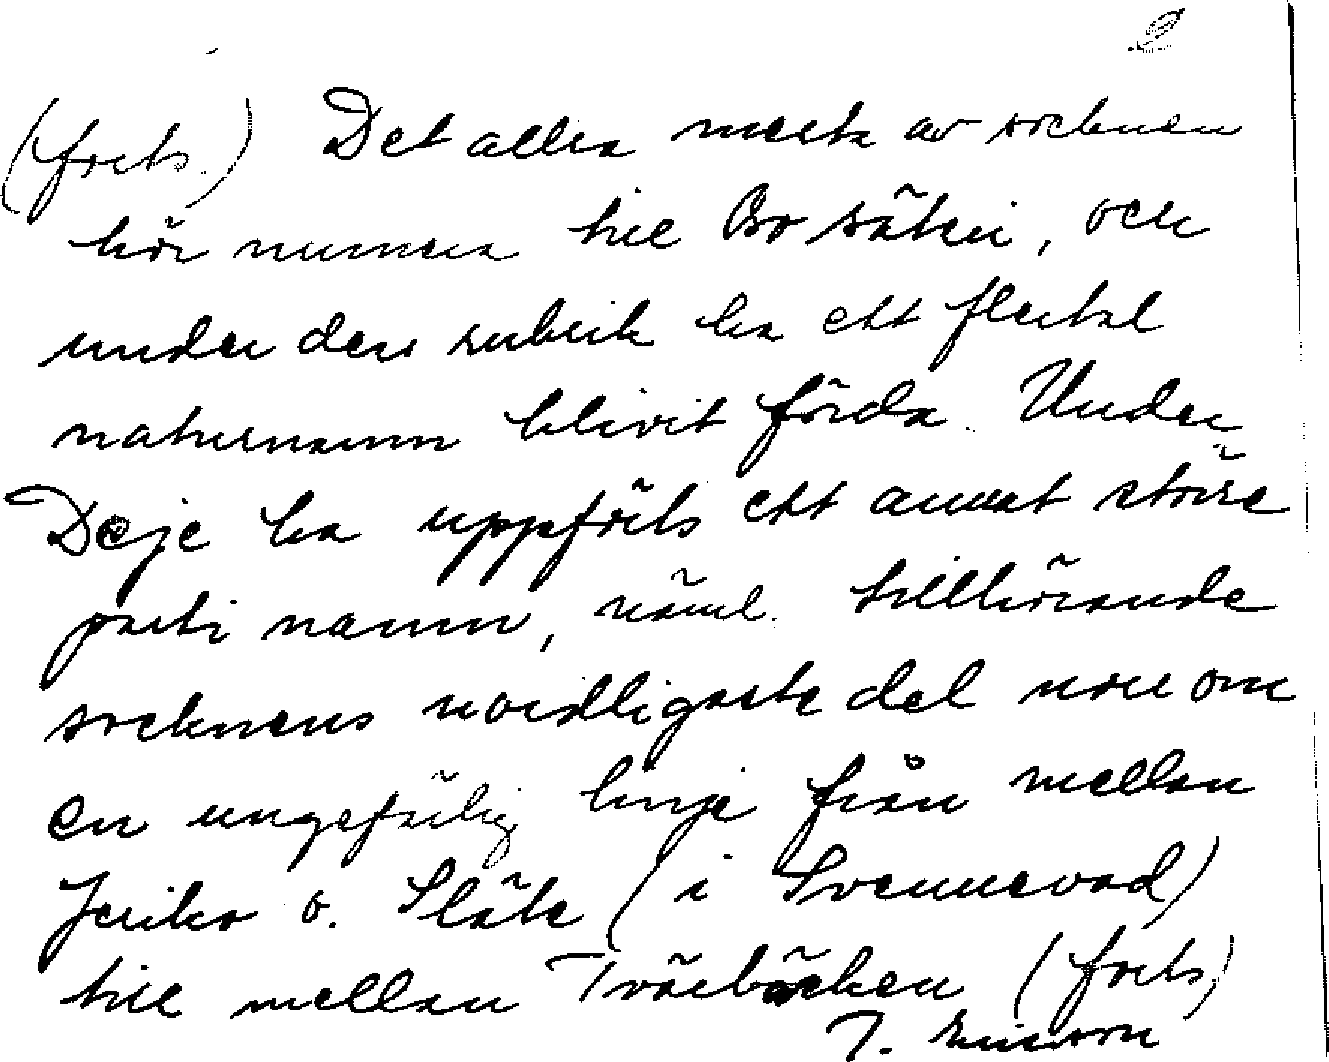 2
(forts.) Det allra mesta av socknen
hör numera till Bo säteri, och
under den rubrik ha ett flertal
naturnamn blivit förda. Under
Deje ha uppförts ett annat större
parti namn, näml. tillhörande
socknens nordligaste del norr om
en ungefärlig linje från mellan
Jeriko o. Släte (i Svennevad)
till mellan Tvärbäcken (forts)
T. Ericsson